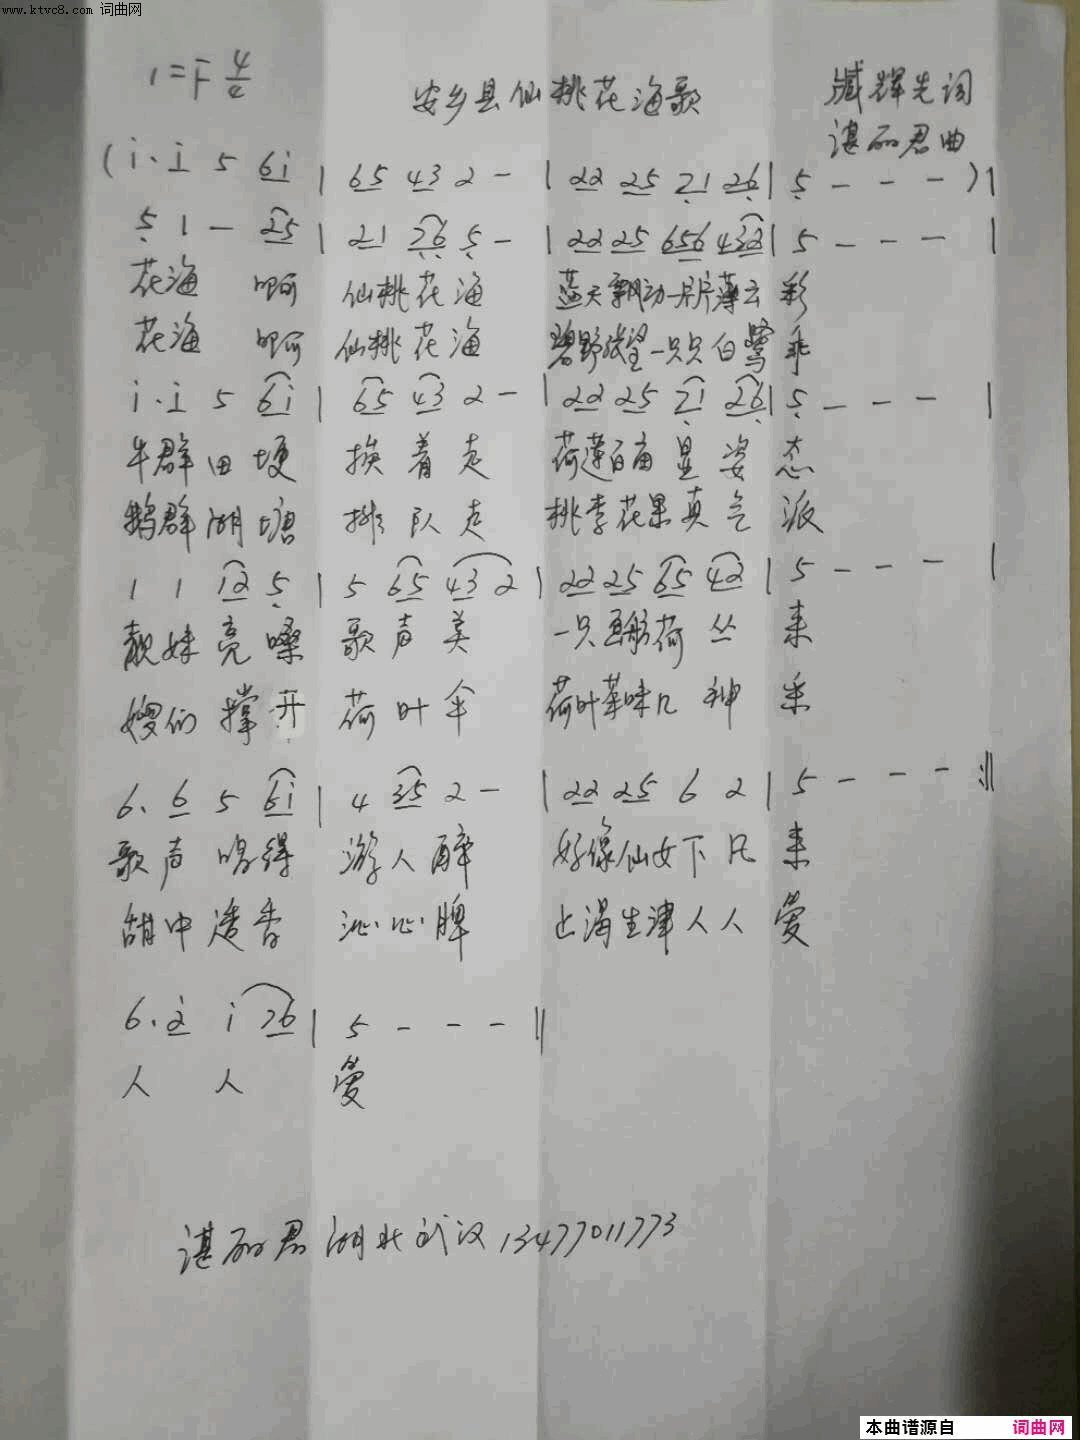 www.ktvc8.com 词曲网
1=F 4/4
安乡县仙桃花海歌
臧辉先词
谌丽君曲
(i· i 5 6i | 65 43 2 - | 22 25 21 26 | 5 - - - )|
5 1 - 25 | 21 26 5 - | 22 25 656 432 | 5 - - - |
花海 啊 仙桃花海 蓝天飘动一片片薄云彩
花海 啊 仙桃花海 碧野张望一只只白鹭乖
i· i 5 6i | 65 43 2 - | 22 25 21 26 | 5 - - - |
牛群田埂 挨着走 荷莲百亩显姿态
鹅群湖塘 排队走 桃李花果真气派
1 1 12 5 | 5 65 43 2 | 22 25 65 42 | 5 - - - |
靓妹亮嗓 歌声美 一只画舫荷丛来
嫂们撑开 荷叶伞 荷叶茶味几种采
6· 6 5 6i | 4 35 2 - | 22 25 6 2 | 5 - - - :||
歌声唱得 游人醉 好像仙女下凡来
甜中透香 沁心脾 止渴生津人人爱
6· 2 i 76 | 5 - - - ||
人 人 爱
谌丽君 湖北武汉 13477011773
本曲谱源自 词曲网